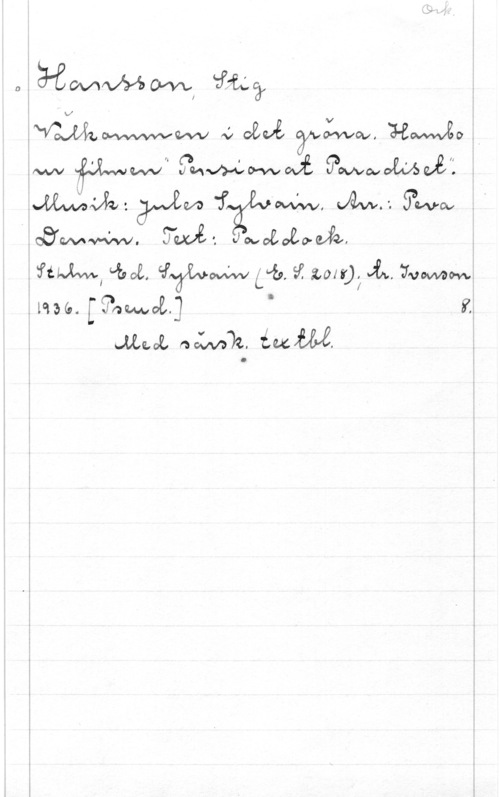 Ork.
Hansson, Stig
Välkommen i det gröna. Hambo
ur filmen "Pensionat Paradiset".
Musik: Jules Sylvain. Arr.: Peva
Derwin. Text: Paddock.
Sthlm, Ed. Sylvain (E. S. 2018); tr. Ivarson
1936. [Pseud.] 8.
Med särsk. textbl.